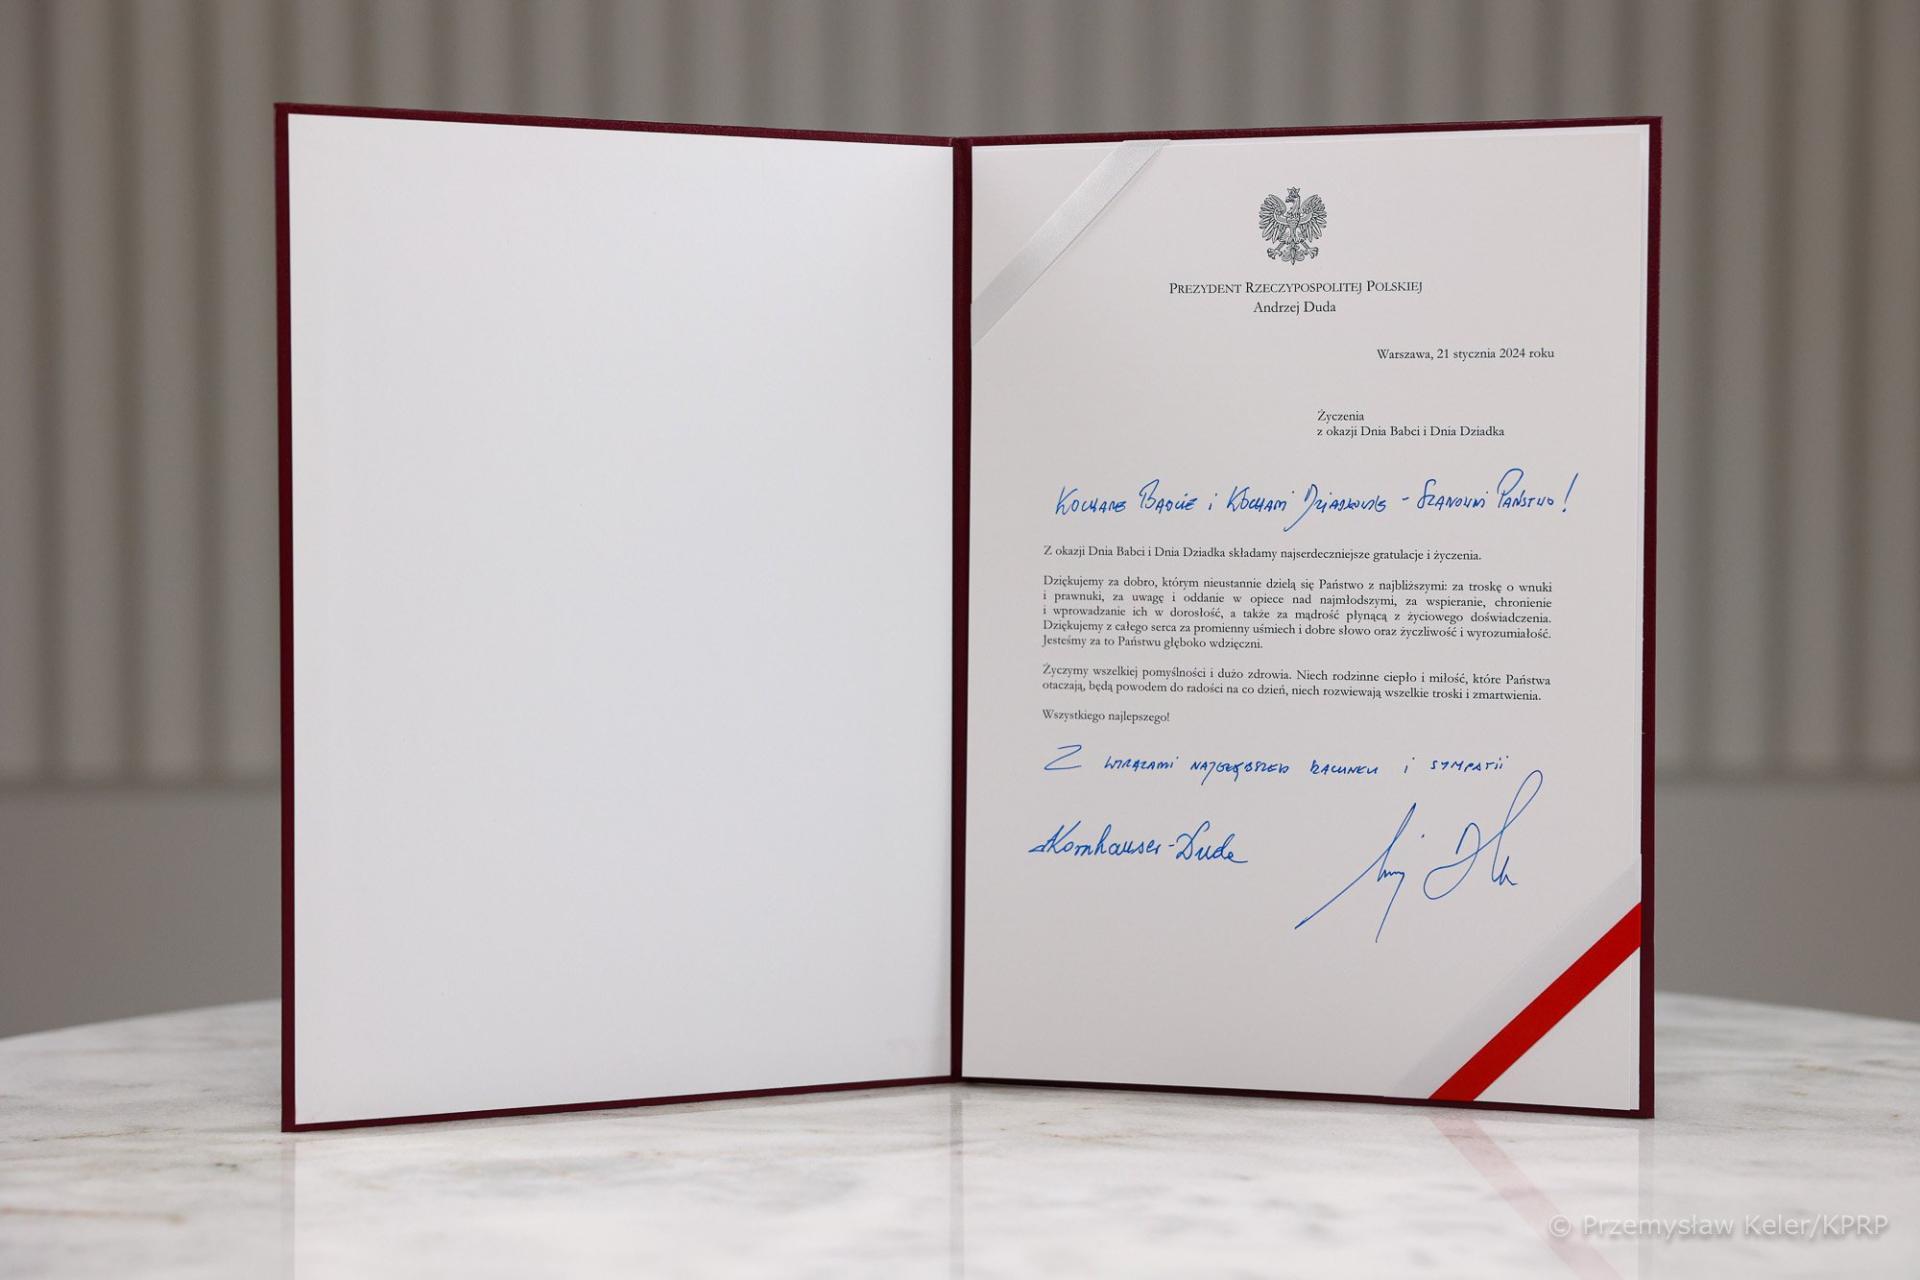 PREZYDENT RZECZYPOSPOLITEJ POLSKIEJ
Andrzej Duda
Warszawa, 21 stycznia 2024 roku
Życzenia
z okazji Dnia Babci i Dnia Dziadka
KOCHANE BABCIE i KOCHANI DZIADKOWIE - SZANOWNI PAŃSTWO!
Z okazji Dnia Babci i Dnia Dziadka składamy najserdeczniejsze gratulacje i życzenia.
Dziękujemy za dobro, którym nieustannie dzielą się Państwo z najbliższymi: za troskę o wnuki
i prawnuki, za uwagę i oddanie w opiece nad najmłodszymi, za wspieranie, chronienie
i wprowadzanie ich w dorosłość, a także za mądrość płynącą z życiowego doświadczenia.
Dziękujemy z całego serca za promienny uśmiech i dobre słowo oraz życzliwość i wyrozumiałość.
Jesteśmy za to Państwu głęboko wdzięczni.
Życzymy wszelkiej pomyślności i dużo zdrowia. Niech rodzinne ciepło i miłość, które Państwa
otaczają, będą powodem do radości na co dzień, niech rozwiewają wszelkie troski i zmartwienia.
Wszystkiego najlepszego!
Z WYRAZAMI NAJGŁĘBSZEGO SZACUNKU i SYMPATII
AKornhauser-Duda
© Przemysław Keler/KPRP